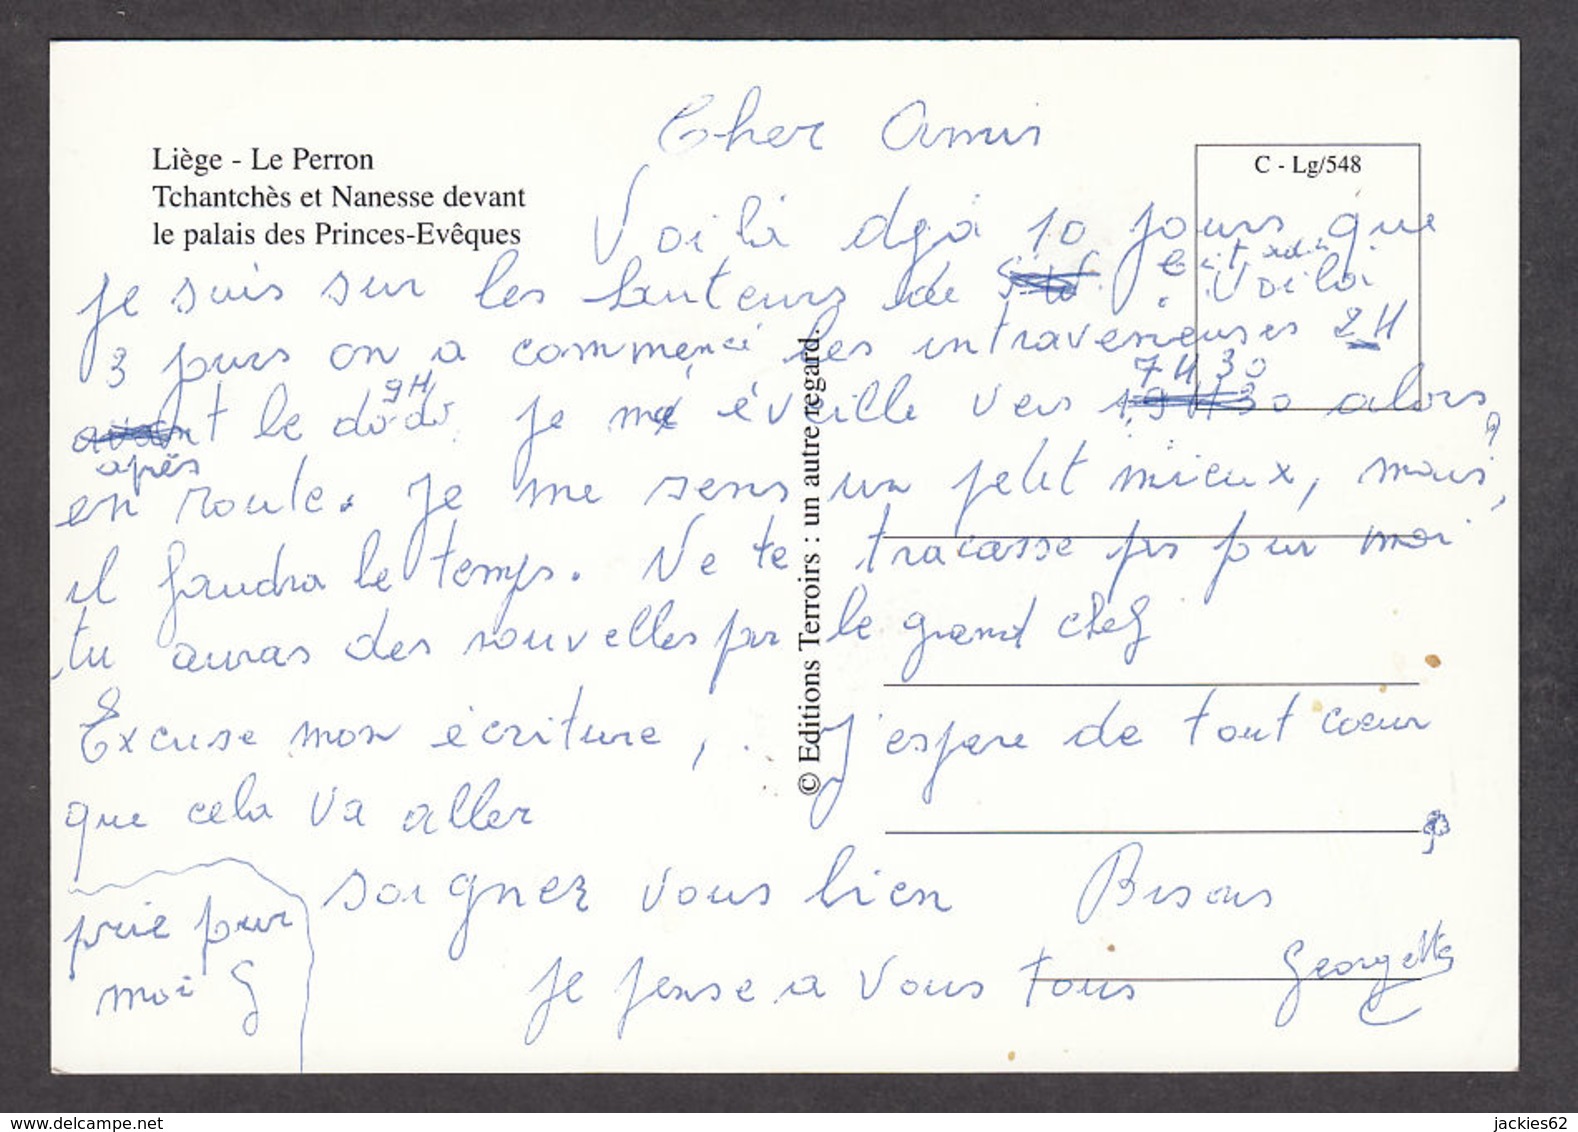 Liège - Le Perron
Tchantchès et Nanesse devant
le palais des Princes-Evêques
C - Lg/548
© Editions Terroirs : un autre regard.
Cher Amis
Voilà dejà 10 jours que
je suis sur les hauteurs de citadel. Voila
3 jours on a commencé les intraveneuses 2H
après le dodo 9H je me éveille vers 7H30 alors
en route. Je me sens un petit mieux, mais,
il faudra le temps. Ne te tracasse pas pour moi
tu auras des nouvelles par le grand chef
Excuse mon écriture, J'espere de tout coeur
que cela va aller
soignez vous bien Bisous
Je pense a vous tous Georgette
prie pour
moi G
www.delcampe.net
jackies62